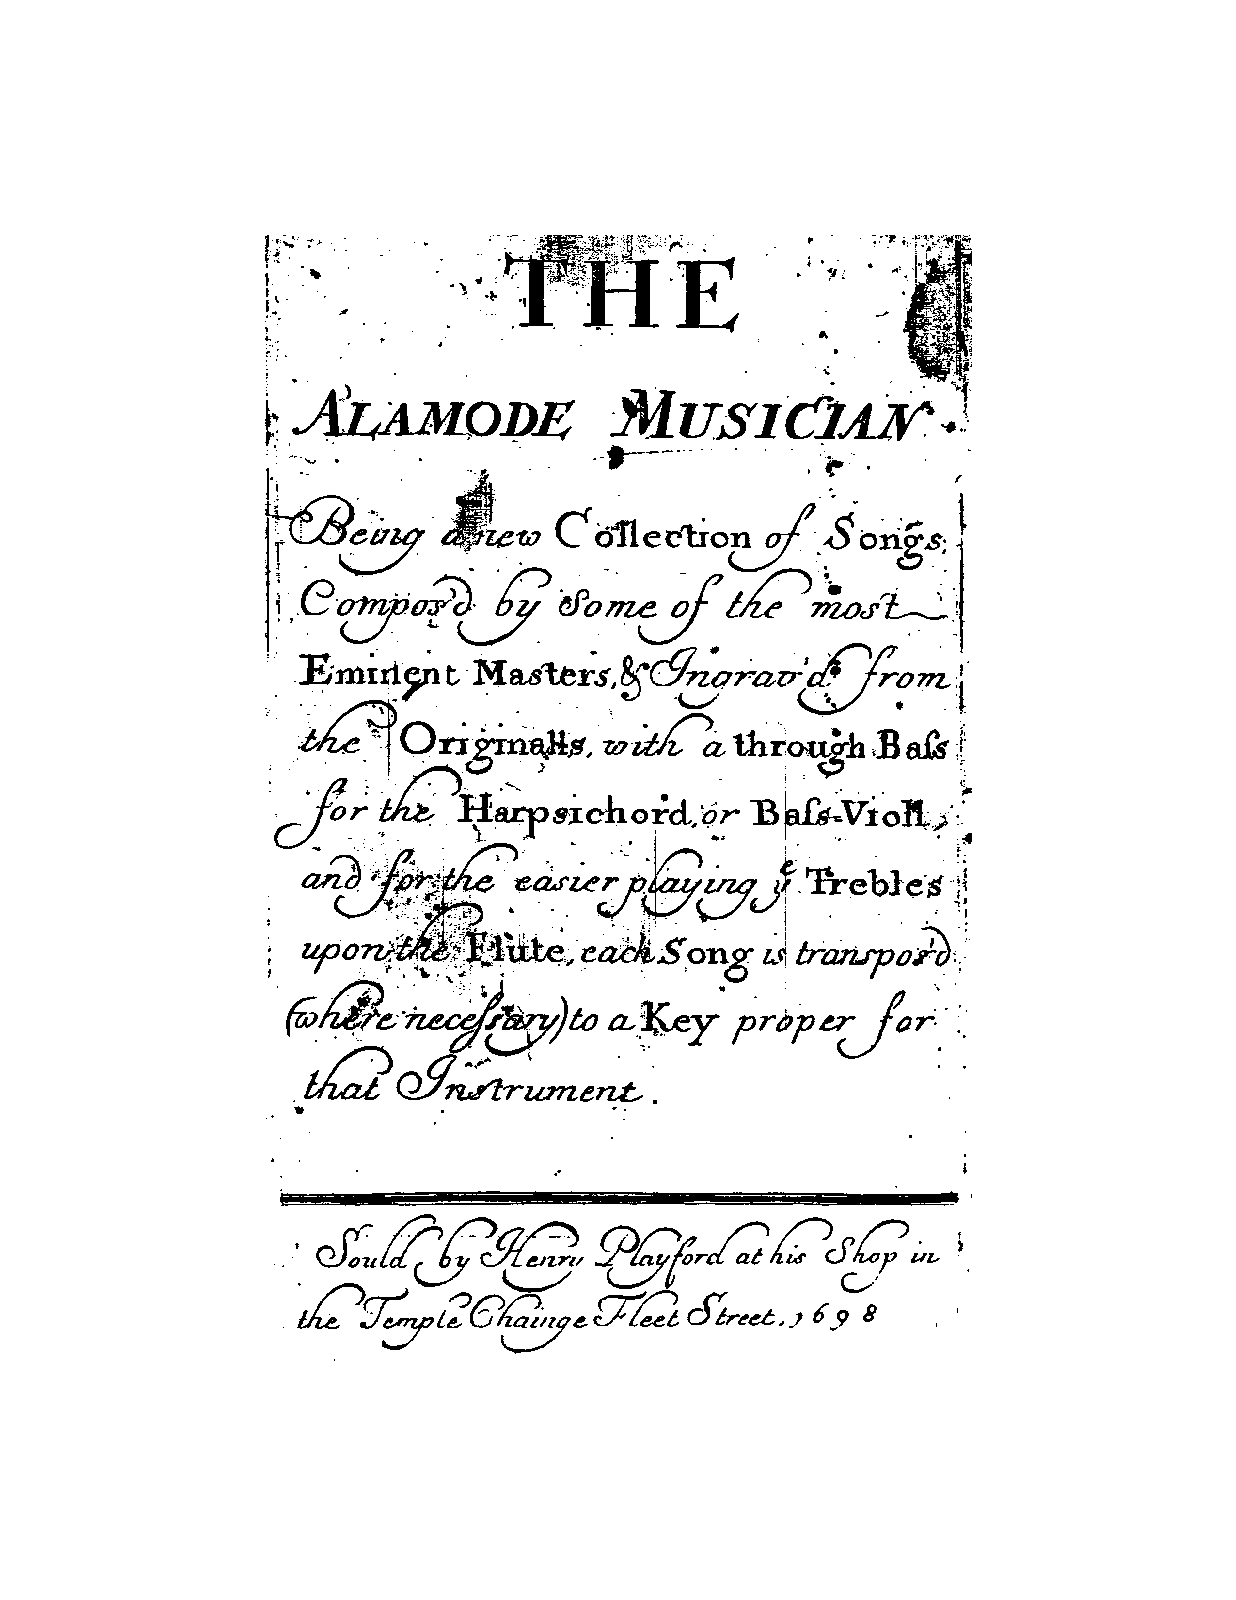 THE
ALAMODE MUSICIAN.
Being a new Collection of Songs,
Compos'd by Some of the most
Eminent Masters, & Ingrav'd from
the Originalls, with a through Baſs
for the Harpsichord, or Baſs-Violl,
and for the easier playing yᵉ Trebles
upon the Flute, each Song is transpos'd
(where neceſsary) to a Key proper for
that Instrument.
Sould by Henry Playford at his Shop in
the Temple Chainge Fleet Street, 1698